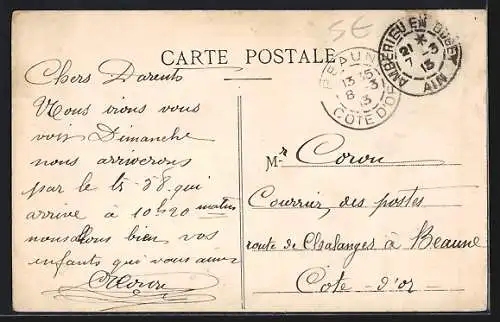 5E
CARTE POSTALE
AMBÉRIEU EN BUGEY
21
7 -3
13
AIN
BEAUNE
13 15
8 -3
13
COTE D'OR
Chers Parents
Nous irons vous
voir Dimanche
nous arriverons
par le 58 qui
arrive à 10h20 matin
bien vos
enfants qui vous aime
Mr Coron
Courrier, des postes
route de à Beaune
Cote - d'or -